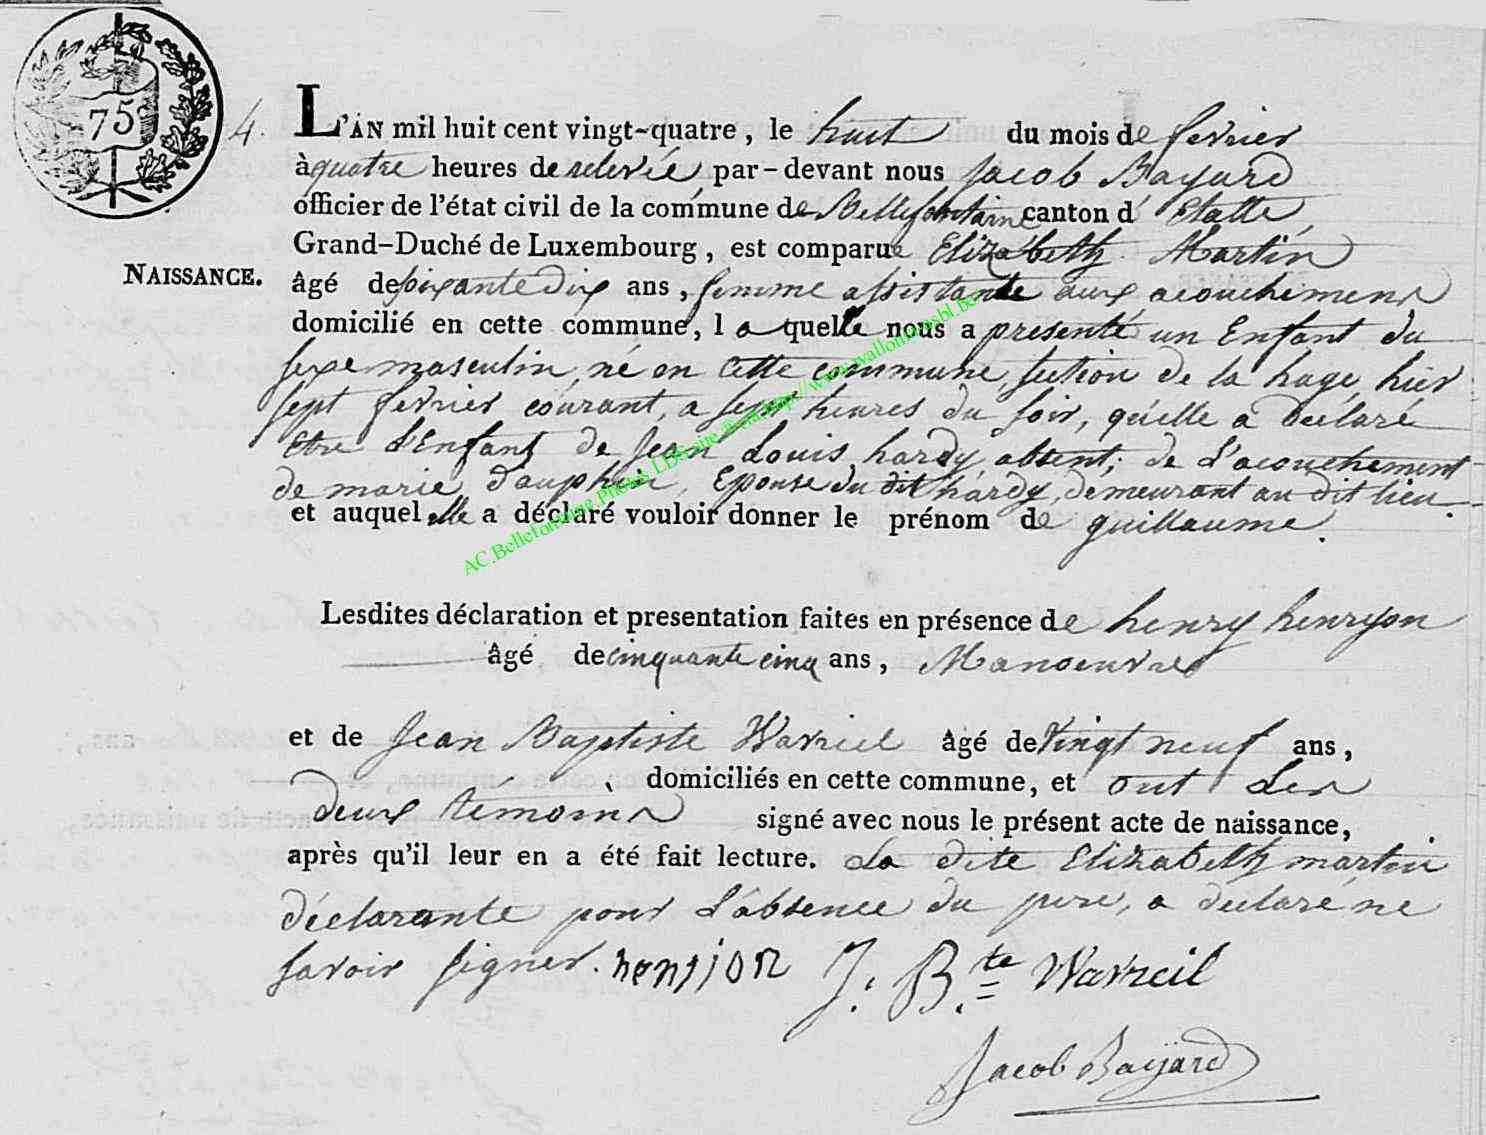 75
4.
L'AN mil huit cent vingt-quatre, le huit du mois de fevrier
à quatre heures de relevée, par-devant nous Jacob Bayard
officier de l'état civil de la commune de Bellefontaine canton d' Etalle,
Grand-Duché de Luxembourg, est comparue Elizabeth Martin
NAISSANCE.
âgé de soixante dix ans, femme assistante aux acouchemens
domicilié en cette commune, laquelle nous a presenté un Enfant du
sexe masculin, né en cette commune, section de la hage, hier
sept fevrier courant, a sept heures du soir, qu'elle a déclaré
Etre l'Enfant de Jean Louis hardy, absent; de l'acouchement
de marie dauphin, Epouse du dit hardy, demeurant au dit lieu.
et auquel elle a déclaré vouloir donner le prénom de guillaume.
Lesdites déclaration et presentation faites en présence de henry henryon
âgé de cinquante cinq ans, Manoeuvre
et de Jean Baptiste Wavreil âgé de Vingt neuf ans,
domiciliés en cette commune, et ont Les
deux témoins signé avec nous le présent acte de naissance,
après qu'il leur en a été fait lecture. La dite Elizabeth martin
déclarante pour L'absence du pere, a declaré ne
savoir signer. henrjon J: B.te Wavreil
Jacob Bayard
AC.Bellefontaine Photos